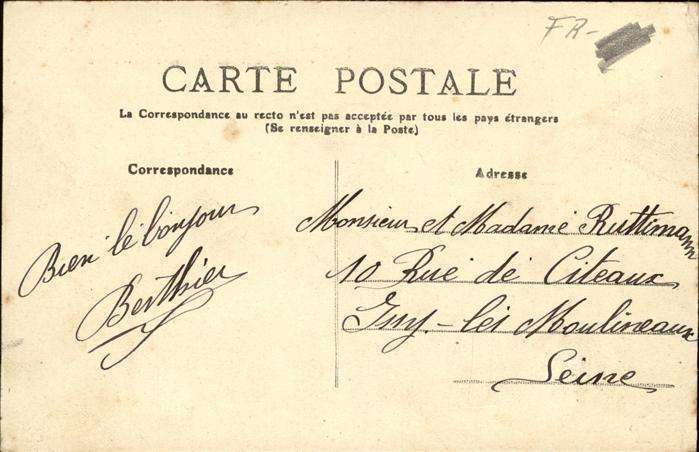 FR-
CARTE POSTALE
La Correspondance au recto n'est pas acceptée par tous les pays étrangers
(Se renseigner à la Poste)
Correspondance
Bien le bonjour
Berthier
Adresse
Monsieur et Madame Ruttimann
10 Rue de Citeaux
Issy-les Moulineaux
Seine